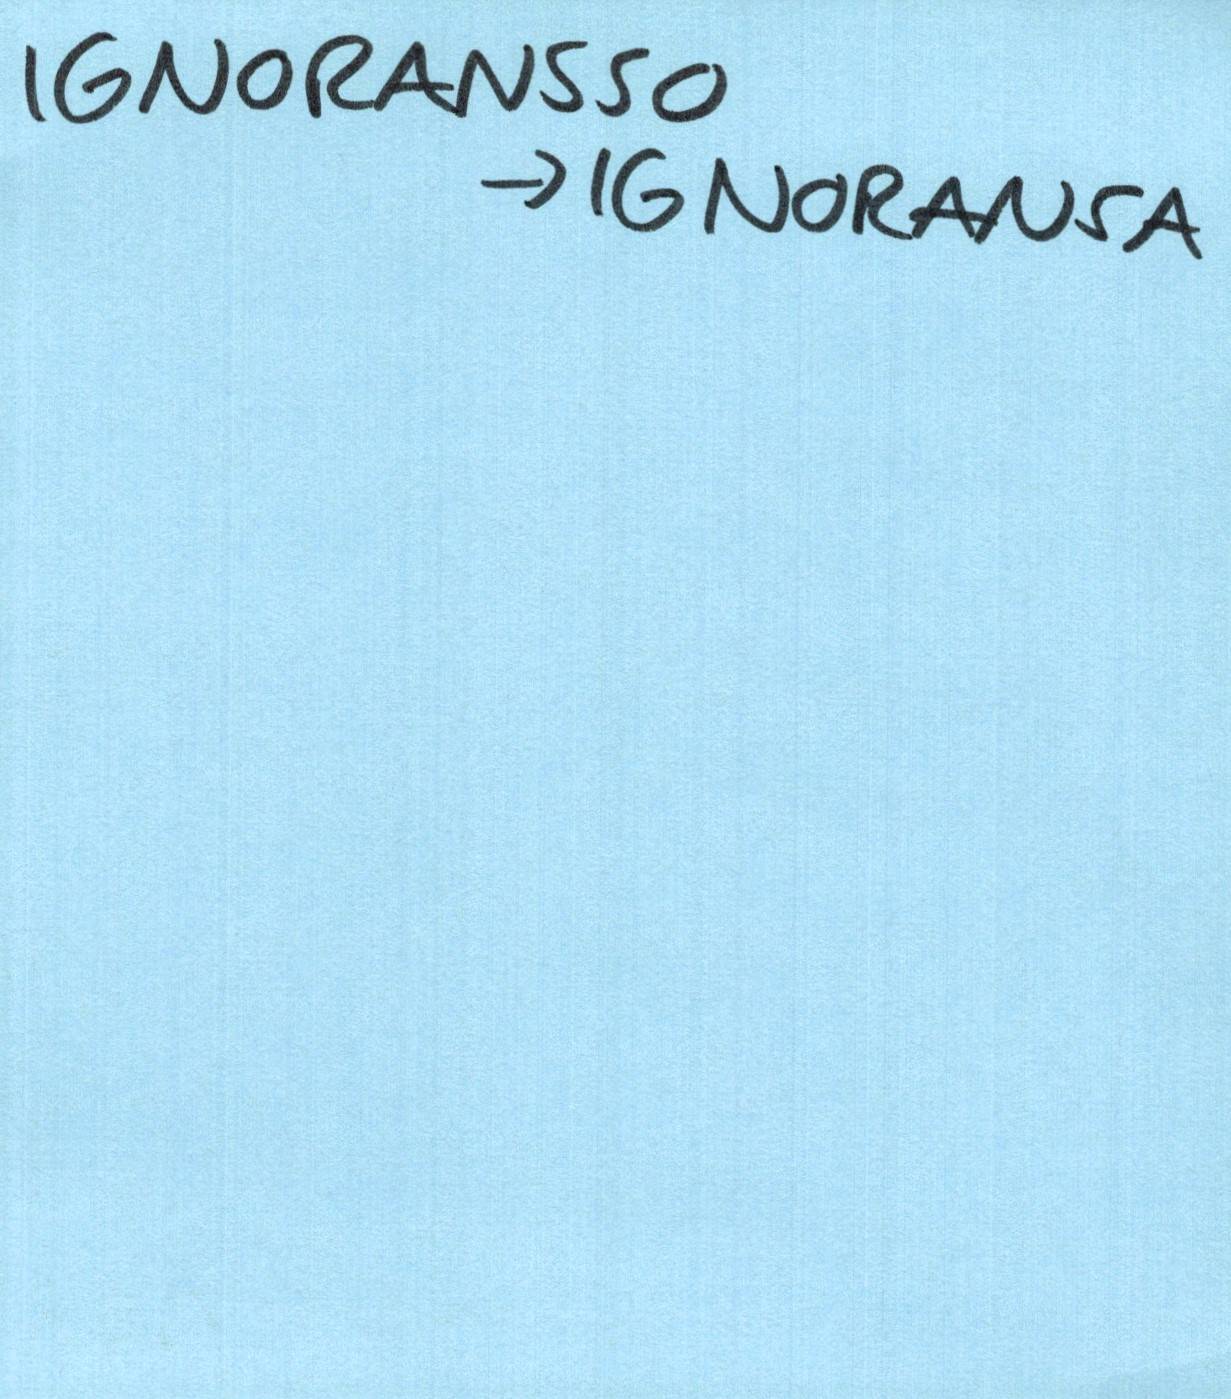 IGNORANSSO
→ IGNORANSA